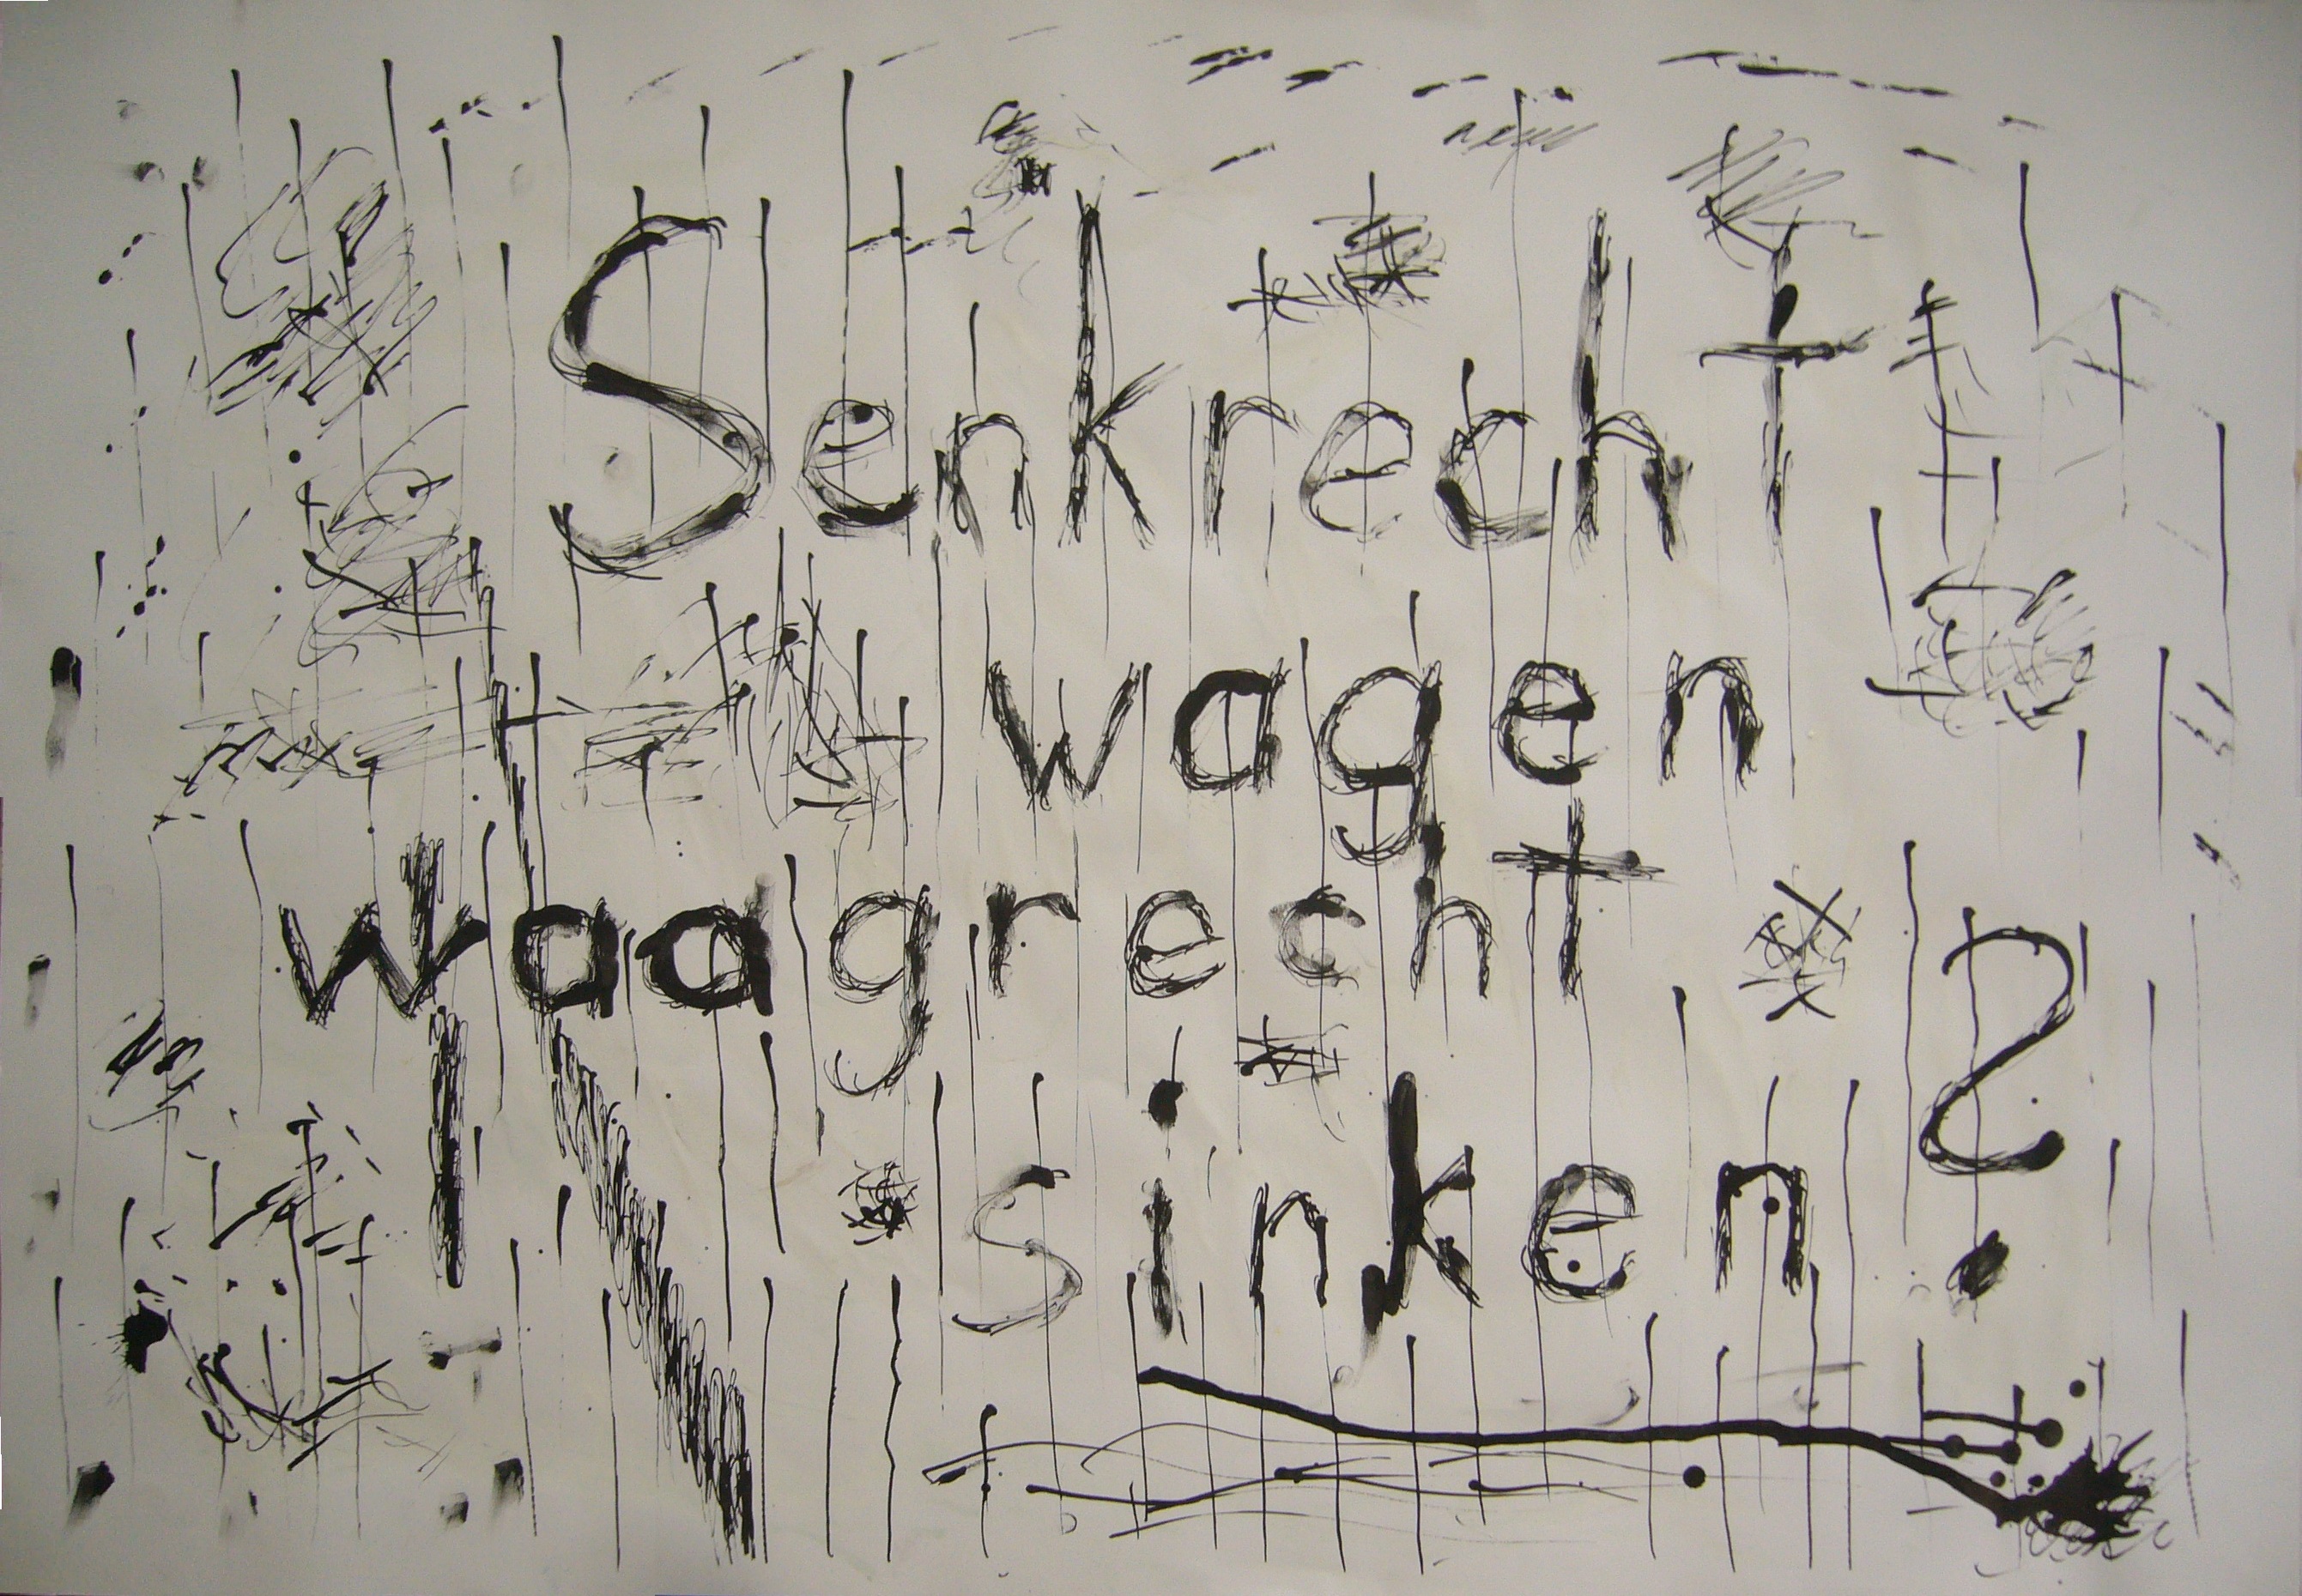 Senkrecht
wagen
waagrecht
sinken?